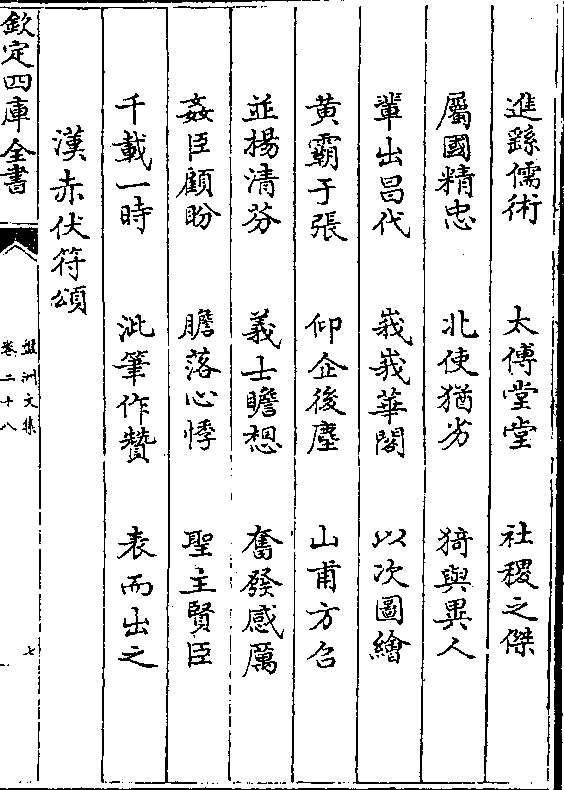 進繇儒術　太傅堂堂　社稷之傑
屬國精忠　北使猶劣　猗與異人
輩出昌代　峩峩華閣　以次圖繪
黄霸于張　仰企後塵　山甫方召
並揚清芬　義士瞻想　奮發感厲
姦臣顧盼　膽落心悸　聖主賢臣
千載一時　泚筆作贊　表而出之
漢赤伏符頌
欽定四庫全書
盤洲文集
卷二十八
七